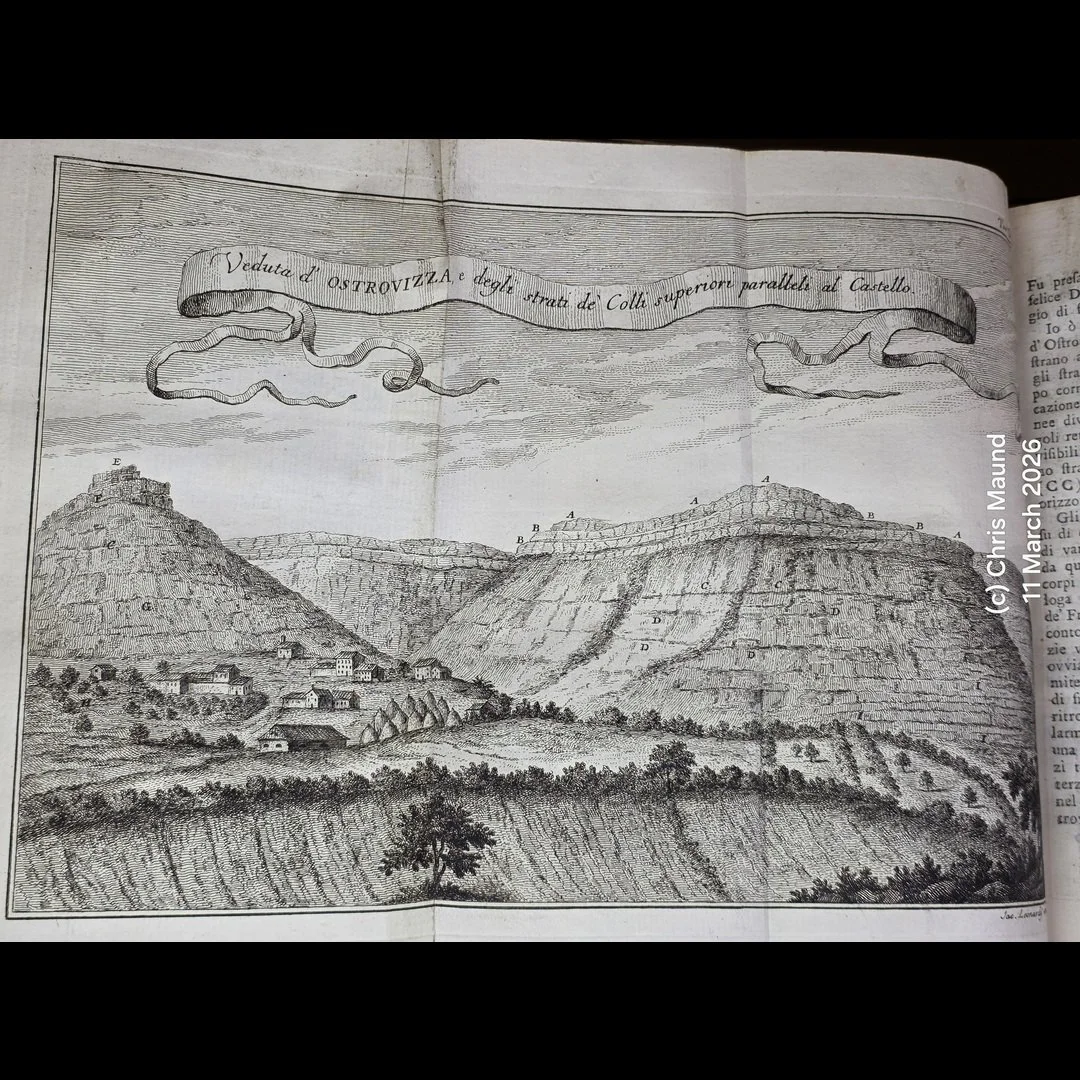 Veduta d' OSTROVIZZA, e degli strati de' Colli superiori paralleli al Castello.
E
F
G
H
A
B
B
A
A
B
B
A
C
C
D
D
D
D
I
I
I
Jac. Leonardis
felice D
gio di
Io ò
d'Oſtro
ſtrano
gli ſtra
po
cazione
nee
CC)
Gli
ſu di
di va
da qu
corpi
loga
de' Fa
conto
zie v
ovvia
mite
di
ritro
larm
una
zi t
terz
nel
trov
(c) Chris Maund
11 March 2026